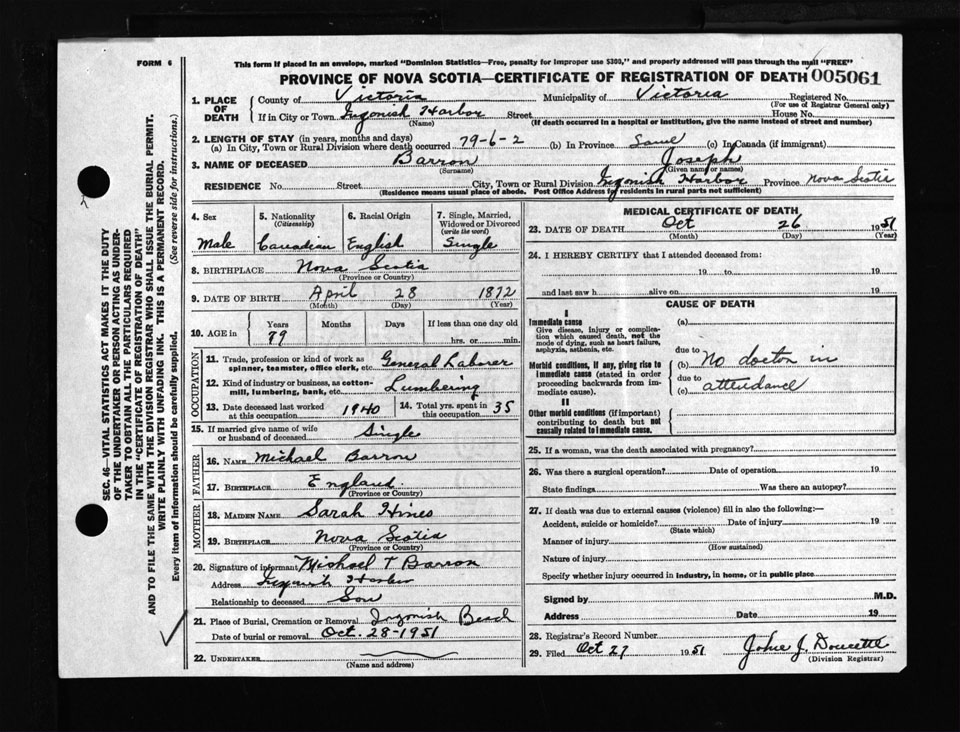 FORM 6
This form if placed in an envelope, marked "Dominion Statistics—Free, penalty for improper use $300," and properly addressed will pass through the mail "FREE"
PROVINCE OF NOVA SCOTIA—CERTIFICATE OF REGISTRATION OF DEATH 005061
SEC. 46—VITAL STATISTICS ACT MAKES IT THE DUTY
OF THE UNDERTAKER OR PERSON ACTING AS UNDER-
TAKER TO OBTAIN ALL THE PARTICULARS REQUIRED
IN THE "CERTIFICATE OF REGISTRATION OF DEATH"
AND TO FILE THE SAME WITH THE DIVISION REGISTRAR WHO SHALL ISSUE THE BURIAL PERMIT.
WRITE PLAINLY WITH UNFADING INK. THIS IS A PERMANENT RECORD.
Every item of information should be carefully supplied. (See reverse side for instructions.)
1. PLACE OF DEATH
County of Victoria Municipality of Victoria Registered No.
(For use of Registrar General only)
If in City or Town Ingonish Harbor Street House No.
(Name) (If death occurred in a hospital or institution, give the name instead of street and number)
2. LENGTH OF STAY (in years, months and days)
(a) In City, Town or Rural Division where death occurred 79-6-2 (b) In Province Same (c) In Canada (if immigrant)
3. NAME OF DECEASED Barron Joseph
(Surname) (Given name or names)
RESIDENCE No. Street City, Town or Rural Division Ingonish Harbor Province Nova Scotia
(Residence means usual place of abode. Post Office Address for residents in rural parts not sufficient)
4. Sex
Male
5. Nationality
(Citizenship)
Canadian
6. Racial Origin
English
7. Single, Married,
Widowed or Divorced
(write the word)
Single
8. BIRTHPLACE Nova Scotia
(Province or Country)
9. DATE OF BIRTH April 28 1872
(Month) (Day) (Year)
10. AGE in
Years Months Days If less than one day old
79 hrs. or min.
OCCUPATION
11. Trade, profession or kind of work as
spinner, teamster, office clerk, etc. General Labourer
12. Kind of industry or business, as cotton-
mill, lumbering, bank, etc. Lumbering
13. Date deceased last worked
at this occupation 1940
14. Total yrs. spent in
this occupation 35
15. If married give name of wife
or husband of deceased Single
FATHER
16. NAME Michael Barron
17. BIRTHPLACE England
(Province or Country)
MOTHER
18. MAIDEN NAME Sarah Hines
19. BIRTHPLACE Nova Scotia
(Province or Country)
20. Signature of informant Michael T Barron
Address Ingonish Harbor
Relationship to deceased Son
21. Place of Burial, Cremation or Removal Ingonish Beach
Date of burial or removal Oct. 28-1951
22. UNDERTAKER
(Name and address)
MEDICAL CERTIFICATE OF DEATH
23. DATE OF DEATH Oct 26 1951
(Month) (Day) (Year)
24. I HEREBY CERTIFY that I attended deceased from:
19 to 19
and last saw h alive on 19
CAUSE OF DEATH
I
Immediate cause (a)
Give disease, injury or complica-
tion which caused death, not the
mode of dying, such as heart failure,
asphyxia, asthenia, etc.
due to
Morbid conditions, if any, giving rise to
immediate cause (stated in order
proceeding backwards from im-
mediate cause).
(b) No doctor in
due to
(c) attendance
II
Other morbid conditions (if important)
contributing to death but not
causally related to immediate cause.
25. If a woman, was the death associated with pregnancy?
26. Was there a surgical operation? Date of operation 19
State findings Was there an autopsy?
27. If death was due to external causes (violence) fill in also the following:—
Accident, suicide or homicide? Date of injury 19
(State which)
Manner of injury
(How sustained)
Nature of injury
Specify whether injury occurred in industry, in home, or in public place
Signed by M.D.
Address Date 19
28. Registrar's Record Number
29. Filed Oct 27 1951 John J. Doucette
(Division Registrar)